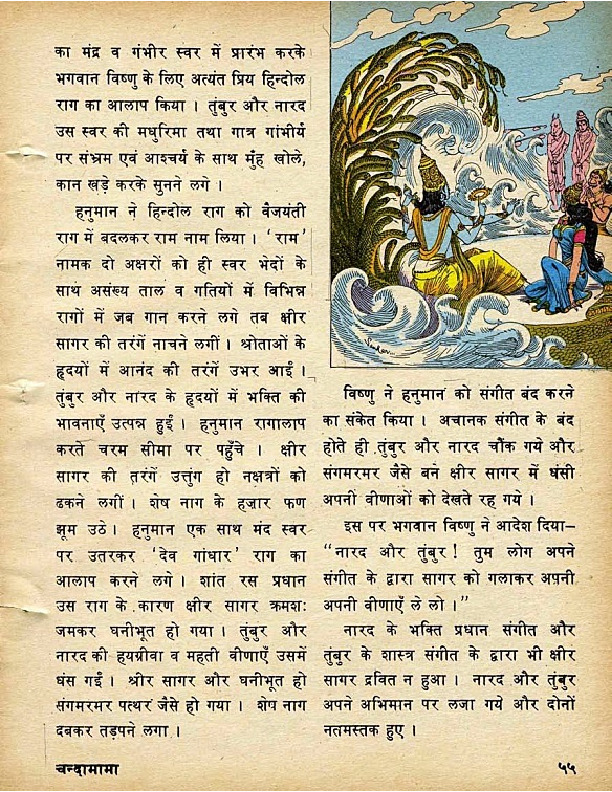 का मंद्र व गंभीर स्वर में प्रारंभ करके
भगवान विष्णु के लिए अत्यंत प्रिय हिन्दोल
राग का आलाप किया । तुंबुर और नारद
उस स्वर की मधुरिमा तथा गात्र गांभीर्य
पर संभ्रम एवं आश्चर्य के साथ मुँह खोले,
कान खड़े करके सुनने लगे ।
हनुमान ने हिन्दोल राग को वैजयंती
राग में बदलकर राम नाम लिया । ‘राम’
नामक दो अक्षरों को ही स्वर भेदों के
साथ असंख्य ताल व गतियों में विभिन्न
रागों में जब गान करने लगे तब क्षीर
सागर की तरंगें नाचने लगीं । श्रोताओं के
हृदयों में आनंद की तरंगें उभर आईं ।
तुंबुर और नारद के हृदयों में भक्ति की
भावनाएँ उत्पन्न हुईं । हनुमान रागालाप
करते चरम सीमा पर पहुँचे । क्षीर
सागर की तरंगें उत्तुंग हो नक्षत्रों को
ढकने लगीं । शेष नाग के हज़ार फण
झूम उठे । हनुमान एक साथ मंद स्वर
पर उतरकर ‘देव गांधार’ राग का
आलाप करने लगे । शांत रस प्रधान
उस राग के कारण क्षीर सागर क्रमशः
जमकर घनीभूत हो गया । तुंबुर और
नारद की हयग्रीवा व महती वीणाएँ उसमें
धंस गईं । श्रीर सागर और घनीभूत हो
संगमरमर पत्थर जैसे हो गया । शेष नाग
दबकर तड़पने लगा ।
विष्णु ने हनुमान को संगीत बंद करने
का संकेत किया । अचानक संगीत के बंद
होते ही तुंबुर और नारद चौंक गये और
संगमरमर जैसे बने क्षीर सागर में धंसी
अपनी वीणाओं को देखते रह गये ।
इस पर भगवान विष्णु ने आदेश दिया–
“नारद और तुंबुर ! तुम लोग अपने
संगीत के द्वारा सागर को गलाकर अपनी
अपनी वीणाएँ ले लो ।”
नारद के भक्ति प्रधान संगीत और
तुंबुर के शास्त्र संगीत के द्वारा भी क्षीर
सागर द्रवित न हुआ । नारद और तुंबुर
अपने अभिमान पर लजा गये और दोनों
नतमस्तक हुए ।
चन्दामामा
५५